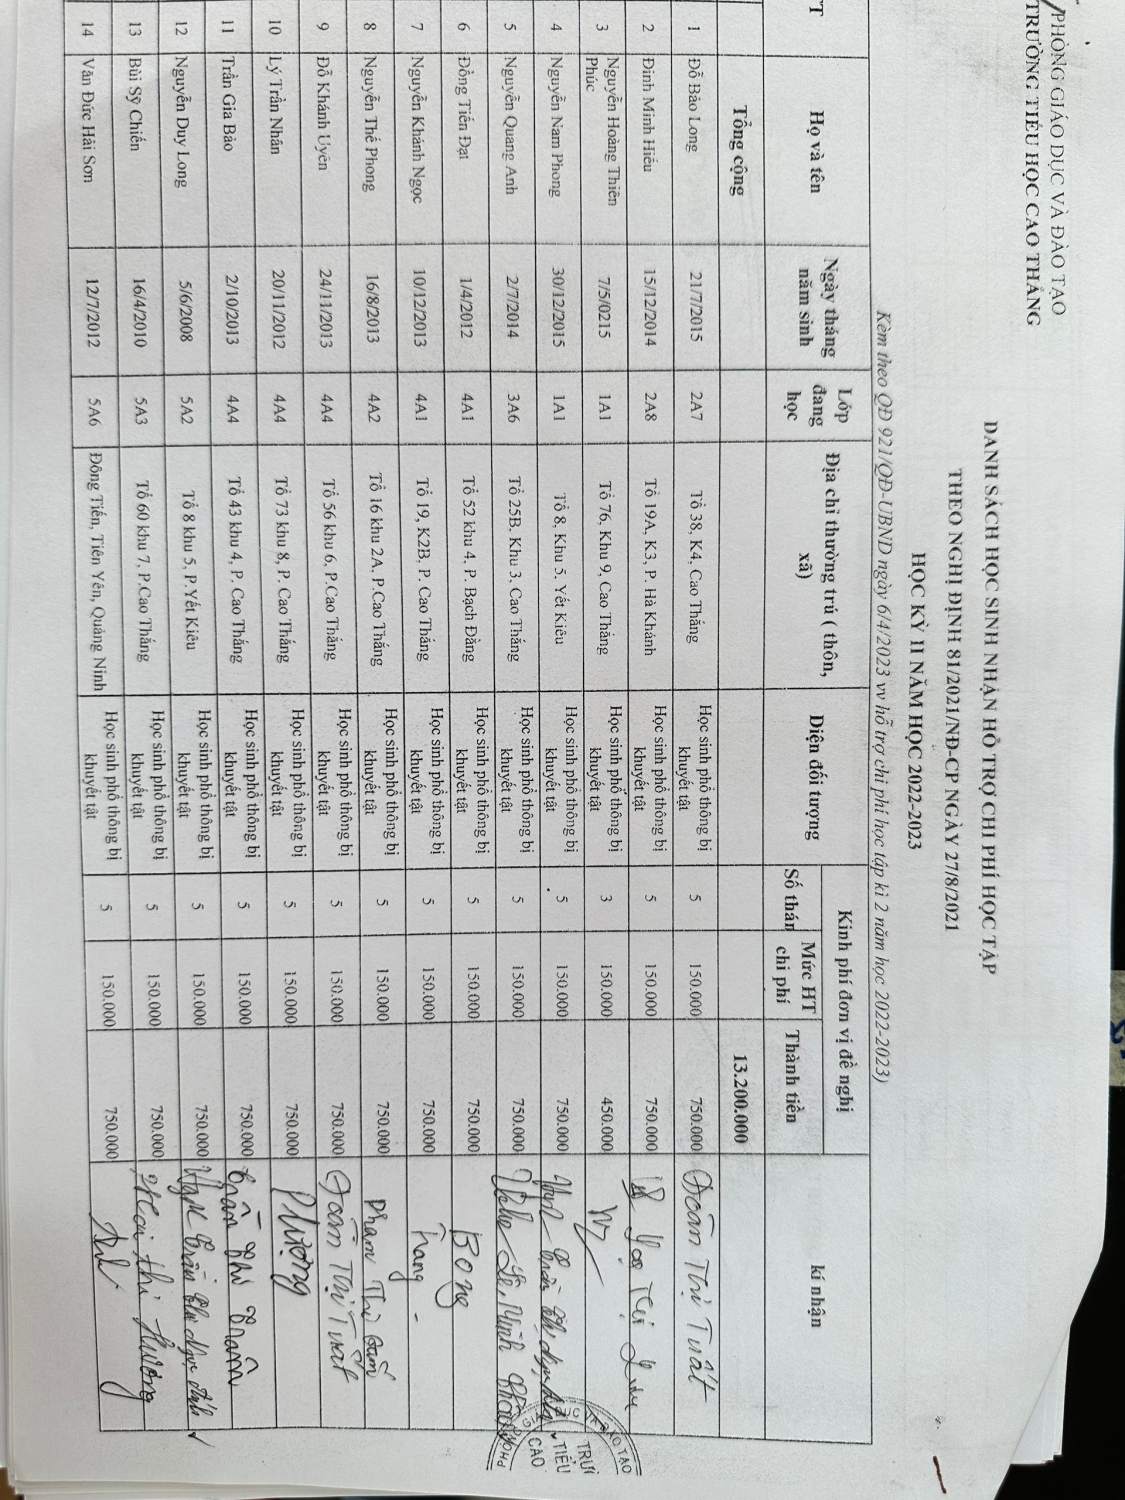 PHÒNG GIÁO DỤC VÀ ĐÀO TẠO
TRƯỜNG TIỂU HỌC CAO THẮNG
DANH SÁCH HỌC SINH NHẬN HỖ TRỢ CHI PHÍ HỌC TẬP
THEO NGHỊ ĐỊNH 81/2021/NĐ-CP NGÀY 27/8/2021
HỌC KỲ II NĂM HỌC 2022-2023
Kèm theo QĐ 921/QĐ-UBND ngày 6/4/2023 vv hỗ trợ chi phí học tập kì 2 năm học 2022-2023)
TT Họ và tên Ngày tháng năm sinh Lớp đang học Địa chỉ thường trú ( thôn, xã) Diện đối tượng Kinh phí đơn vị đề nghị kí nhận
Số thán Mức HT chi phí Thành tiền
Tổng cộng 13.200.000
1 Đỗ Bảo Long 21/7/2015 2A7 Tổ 38, K4, Cao Thắng Học sinh phổ thông bị khuyết tật 5 150.000 750.000 Đoàn Thị Tuất
2 Đinh Minh Hiếu 15/12/2014 2A8 Tổ 19A, K3, P. Hà Khánh Học sinh phổ thông bị khuyết tật 5 150.000 750.000
3 Nguyễn Hoàng Thiên Phúc 7/5/0215 1A1 Tổ 76, Khu 9, Cao Thắng Học sinh phổ thông bị khuyết tật 3 150.000 450.000
4 Nguyễn Nam Phong 30/12/2015 1A1 Tổ 8, Khu 5, Yết Kiêu Học sinh phổ thông bị khuyết tật 5 150.000 750.000
5 Nguyễn Quang Anh 2/7/2014 3A6 Tổ 25B, Khu 3, Cao Thắng Học sinh phổ thông bị khuyết tật 5 150.000 750.000
6 Đồng Tiến Đạt 1/4/2012 4A1 Tổ 52 khu 4, P. Bạch Đằng Học sinh phổ thông bị khuyết tật 5 150.000 750.000 Bong
7 Nguyễn Khánh Ngọc 10/12/2013 4A1 Tổ 19, K2B, P. Cao Thắng Học sinh phổ thông bị khuyết tật 5 150.000 750.000
8 Nguyễn Thế Phong 16/8/2013 4A2 Tổ 16 khu 2A, P.Cao Thắng Học sinh phổ thông bị khuyết tật 5 150.000 750.000 Phạm Thị
9 Đỗ Khánh Uyên 24/11/2013 4A4 Tổ 56 khu 6, P.Cao Thắng Học sinh phổ thông bị khuyết tật 5 150.000 750.000 Đoàn Thị Tuất
10 Lý Trần Nhân 20/11/2012 4A4 Tổ 73 khu 8, P. Cao Thắng Học sinh phổ thông bị khuyết tật 5 150.000 750.000 Phượng
11 Trần Gia Bảo 2/10/2013 4A4 Tổ 43 khu 4, P. Cao Thắng Học sinh phổ thông bị khuyết tật 5 150.000 750.000
12 Nguyễn Duy Long 5/6/2008 5A2 Tổ 8 khu 5, P.Yết Kiêu Học sinh phổ thông bị khuyết tật 5 150.000 750.000
13 Bùi Sỹ Chiến 16/4/2010 5A3 Tổ 60 khu 7, P.Cao Thắng Học sinh phổ thông bị khuyết tật 5 150.000 750.000
14 Văn Đức Hải Sơn 12/7/2012 5A6 Đông Tiến, Tiên Yên, Quảng Ninh Học sinh phổ thông bị khuyết tật 5 150.000 750.000
TIỂU
CAO